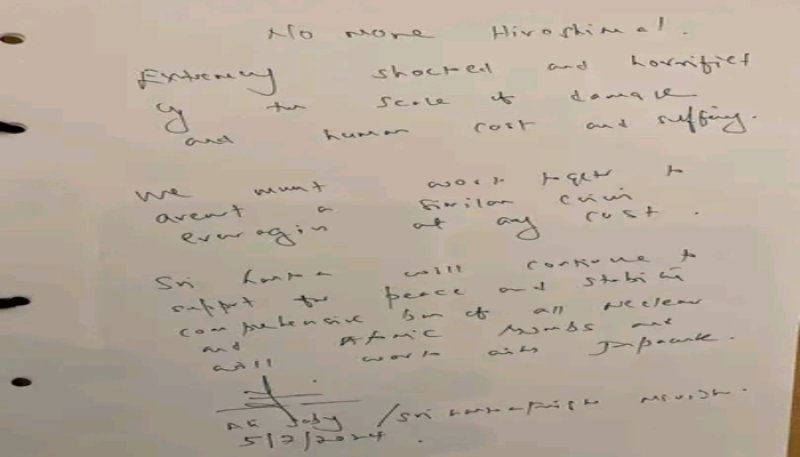 No more Hiroshima!.
Extremely shocked and horrified
by the scale of damage
and human cost and suffering.
We must work together to
avert a similar crisis
ever again at any cost.
Sri Lanka will continue to
support for peace and stability
comprehensive ban of all Neclear
and Atomic bombs and
will work with
Ali Sabry / Sri Lanka Foreign Minister.
5/7/2024.